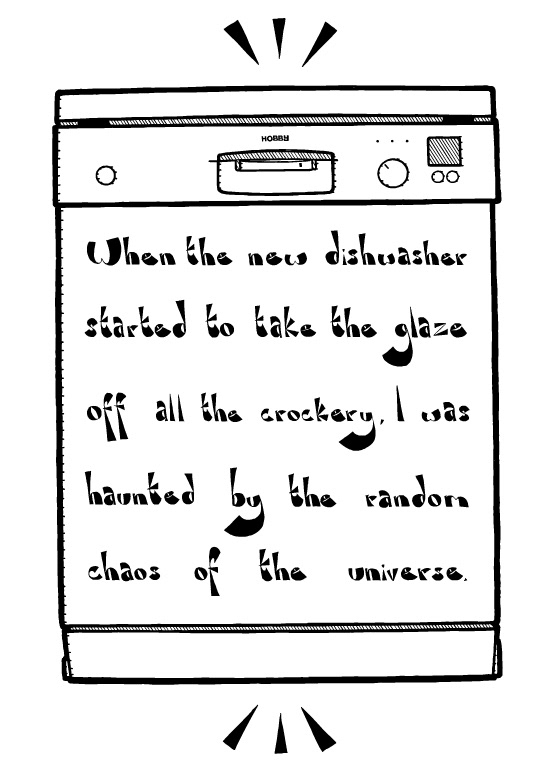 HOBBY
When the new dishwasher
started to take the glaze
off all the crockery, I was
haunted by the random
chaos of the universe.